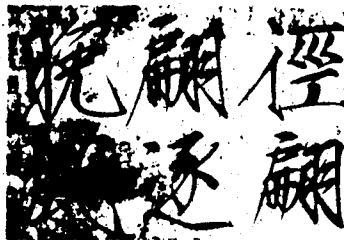 俓翩
翩逐
晚